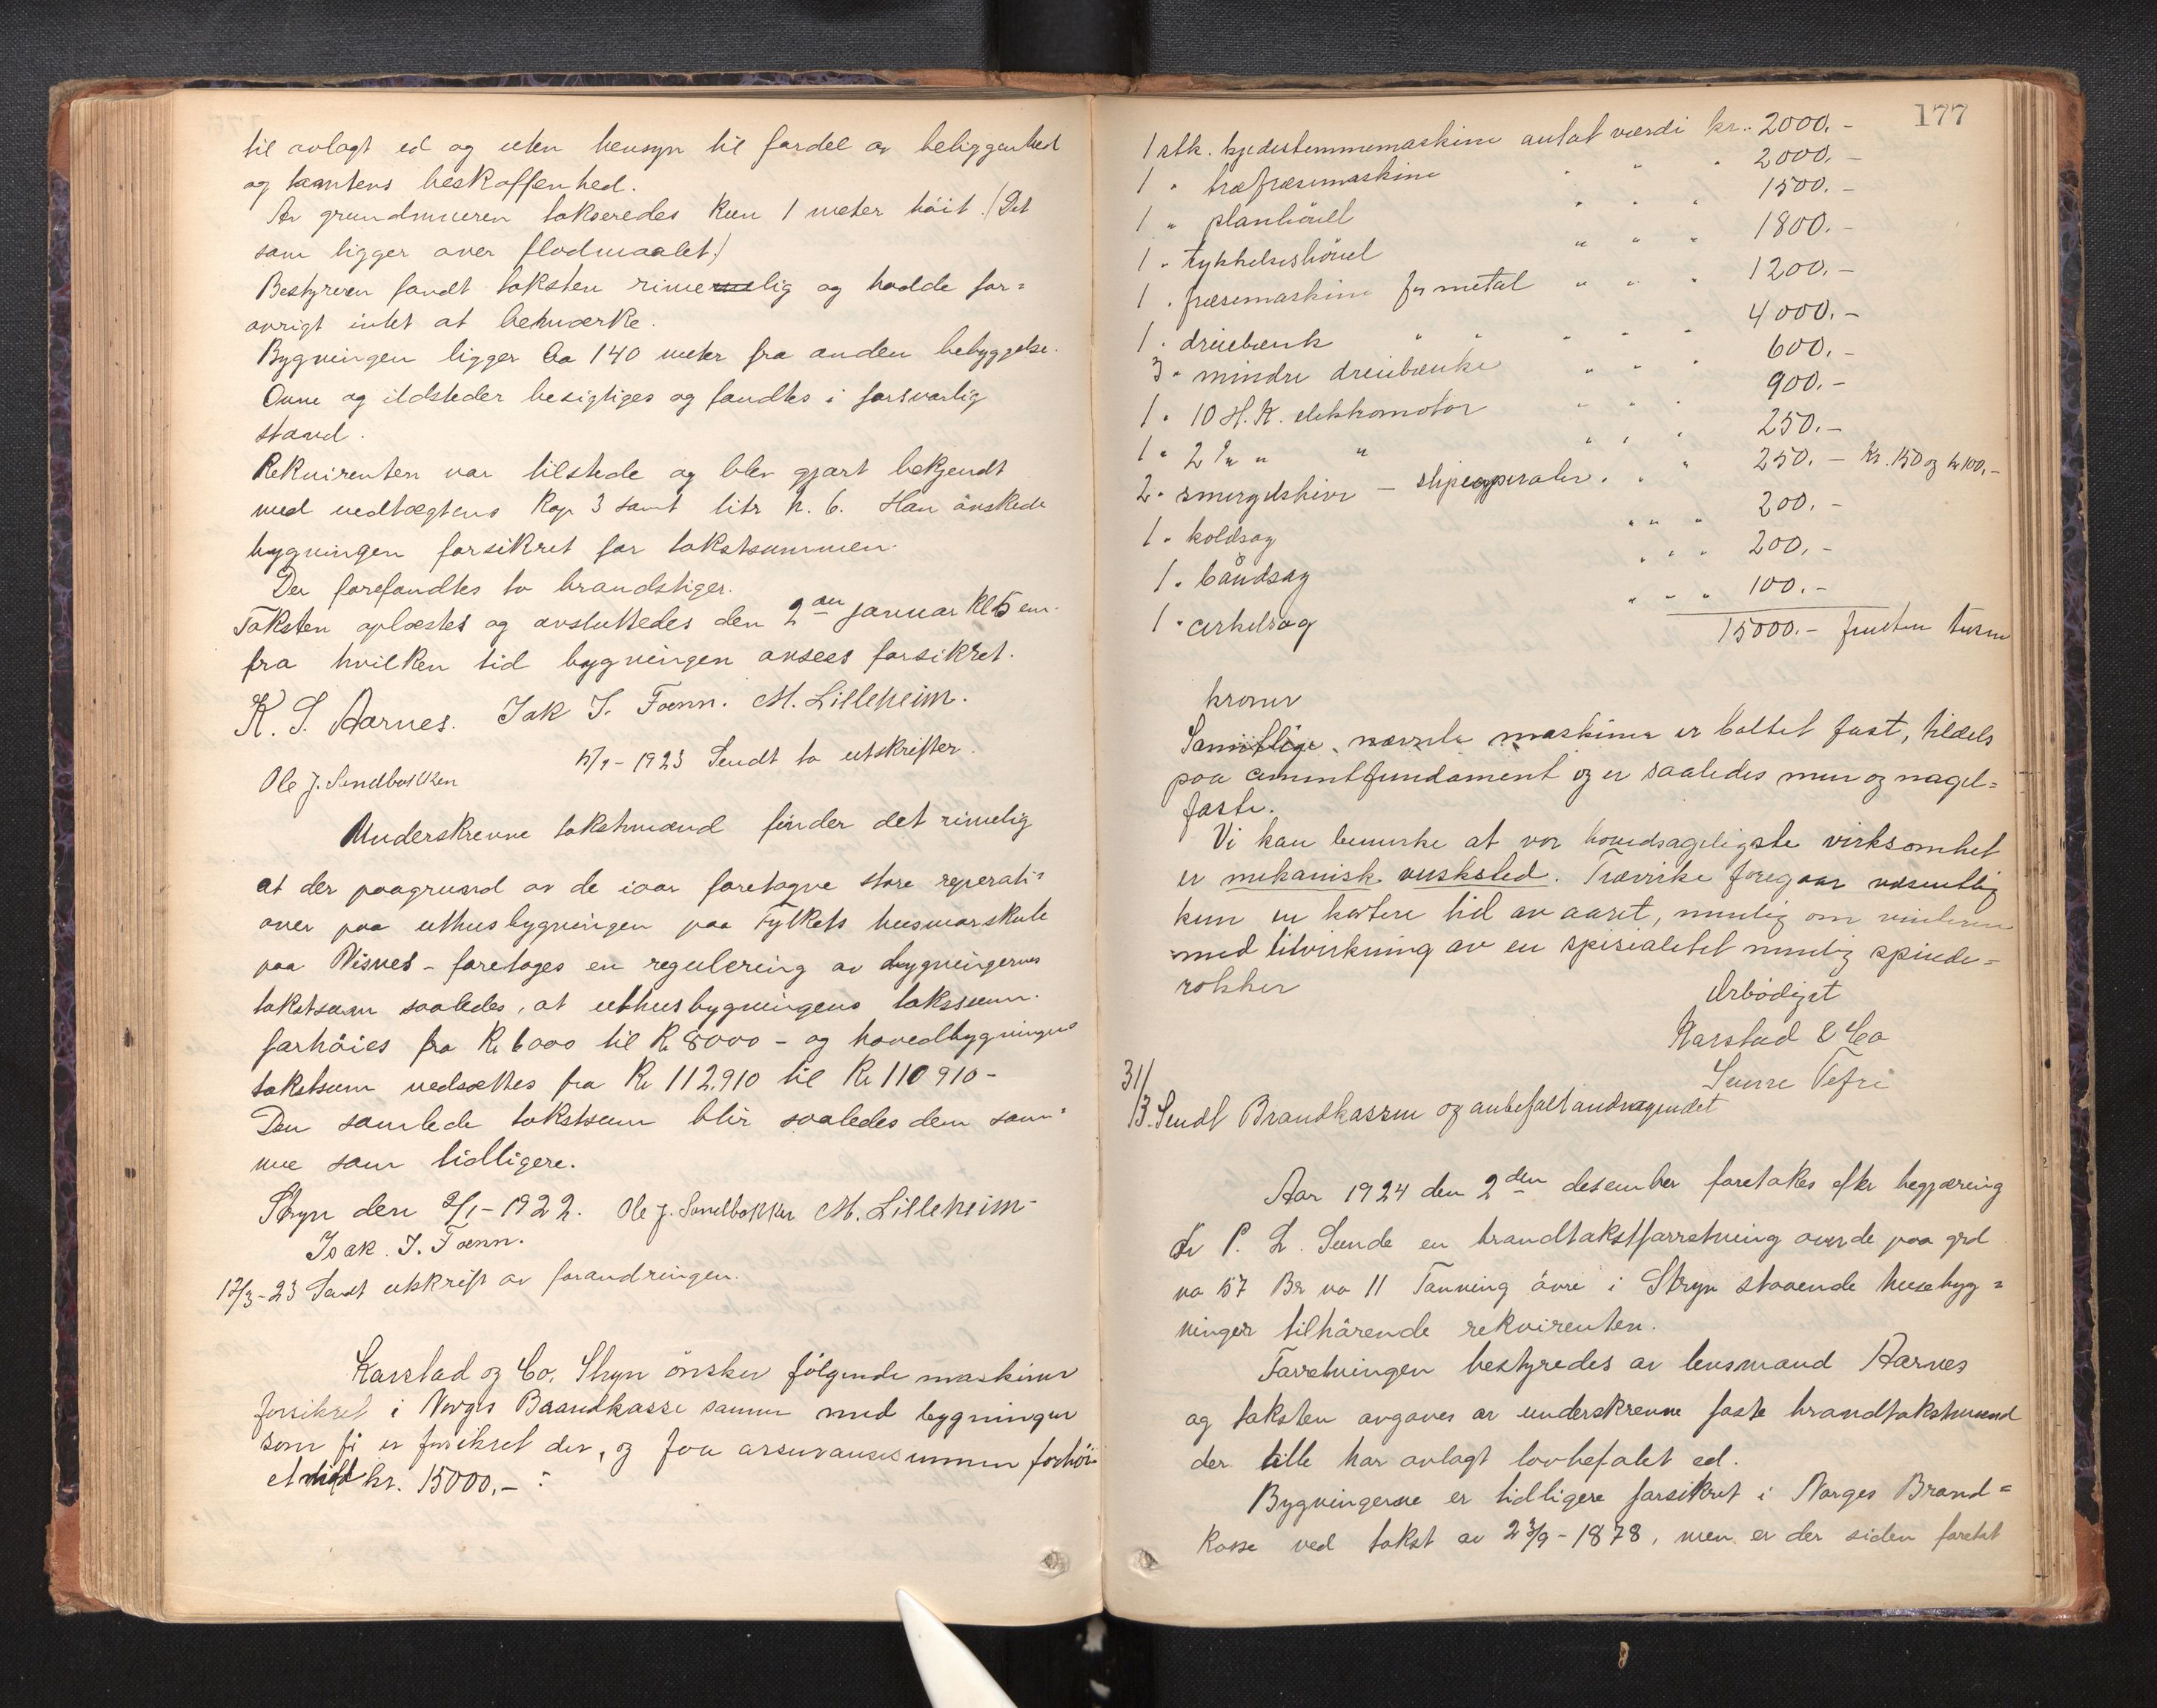 til avlagt ed og uten hensyn til fordel av beliggenhed
og tomtens beskaffenhed.
Av grundmuren takseredes kun 1 meter höit. (Det
som ligger over flodmaalet.)
Bestyreren fandt taksten rimelig og hadde for=
övrigt intet at bemærke.
Bygningen ligger Ca 140 meter fra anden bebyggelse.
Ovne og ildsteder besigtiges og fandtes i forsvarlig
stand.
Rekvirenten var tilstede og blev gjort bekjendt
med vedtægtens Kap 3 samt litr h. 6. Han önskede
bygningen forsikret for takstsummen.
Der forefandtes to brandstiger.
Taksten oplæstes og avsluttedes den 2den januar Kl 5 em.
fra hvilken tid bygningen ansees forsikret.
K. S. Aarnes. Isak I. Foenn. M. Lilleheim.
Ole J. Sandbakken
15/1-1923 Sendt to utskrifter.
Underskrevne takstmænd finder det rimelig
at der paagrund av de iaar foretagne store reperati=
oner paa uthusbygningen paa Fylkets husmorskule
paa Visnes - foretages en regulering av bygningernes
takstsum saaledes, at uthusbygningens takssum
forhöies fra Kr 6000 til Kr 8000 - og hovedbygningens
takstsum nedsættes fra Kr 112.910 til Kr 110 910 -
Den samlede takstsum blir saaledes den sam=
me som tidligere.
Stryn den 2/1-1922. Ole J. Sandbakken M. Lilleheim -
Isak. I. Foenn.
12/3-23 Sendt utskrift av forandringen.
Karstad og Co. Stryn önsker fölgende maskiner
forsikret i Norges Brandkasse sammen med bygningen
som för er forsikret der, og faa assuransesummen forhöi
et med kr. 15000,- :
177
1 stk. kjedestemmemaskine antat værdi kr.. 2000.-
1 " træfræsemaskine " " " 2000.-
1 " planhövel " " " 1500.-
1 " tykkelseshövel " " " 1800.-
1 " fræsemaskine for metal " " " 1200.-
1 " dreiebænk " " " " " 4000.-
3 " mindre dreiebænke " " " 600.-
1 " 10 H.K. elektromotor " " " 900.-
1 " 2 " " " " " " 250.-
2 " smergelskive - slipeapperater " " 250.- Kr. 150 og kr 100,-
1 " koldsag " " " 200.-
1 " båndsag " " " 200.-
1 " cirkelsag " " " 100.-
15000.- femten tusen
kroner
Samtlige nævnte maskiner er boltet fast, tildels
paa cementfundament og er saaledes mur og nagel=
faste.
Vi kan bemerke at vor hovedsageligste virksomhet
er mekanisk verksted. Trævirke foregaar væsentlig
kun en kortere tid av aaret, nemlig om vinteren
med tilvirkning av en spesialitet nemlig spinde=
rokker
Ærbödigst
Karstad & Co
Sverre Tefre
31/
13. Sendt Brandkassen og anbefalt andragendet
Aar 1924 den 2den desember foretokes efter begjæring
av P. L. Sunde en brandtakstforretning over de paa grd
no 57 Br no 11 Tonning övre i Stryn staaende husebyg=
ninger tilhörende rekvirenten.
Forretningen bestyredes av lensmand Aarnes
og taksten avgaves av underskrevne faste brandtakstmænd
der tille har avlagt lovbefalet ed.
Bygningerne er tidligere forsikret i Norges Brand=
kasse ved takst av 23/9-1878, men er der siden foretat